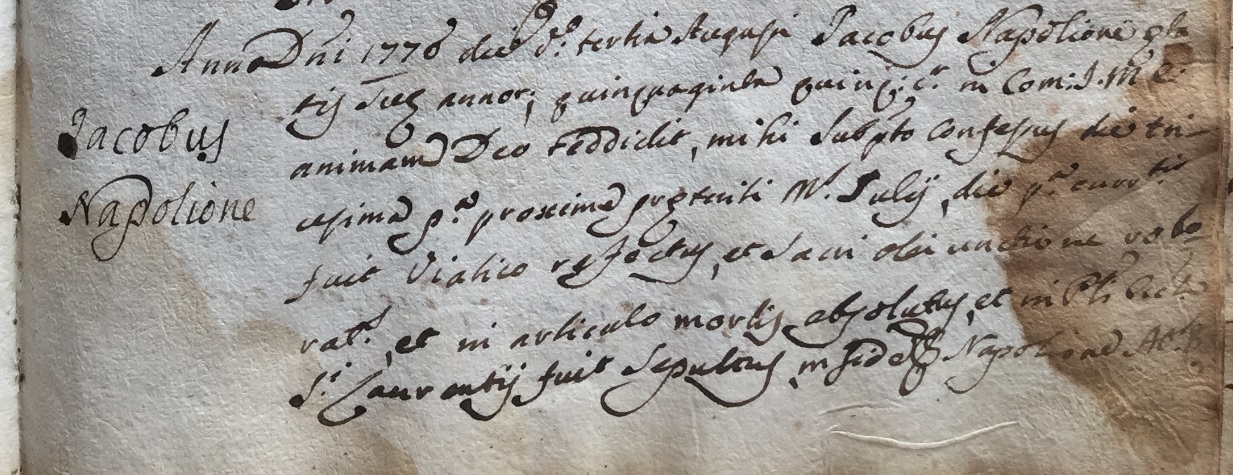 Anno Dni 1778 die v.º tertia Augusti Jacobus Napolione æta
Jacobus
tis suæ annor: quinquaginta quinq: cr. in Com: S. M. E.
animam Deo reddidit, mihi Subpto confessus die tri-
Napolione
cesima p.ª proxime præteriti M. Julij, die p.ª curr.tis
fuit Viatico refectus, et Sacri olei unctione robo-
rat.s, et in articulo mortis absolutus, et in
S.ti Laurentij fuit Sepultus, in fide Napolione